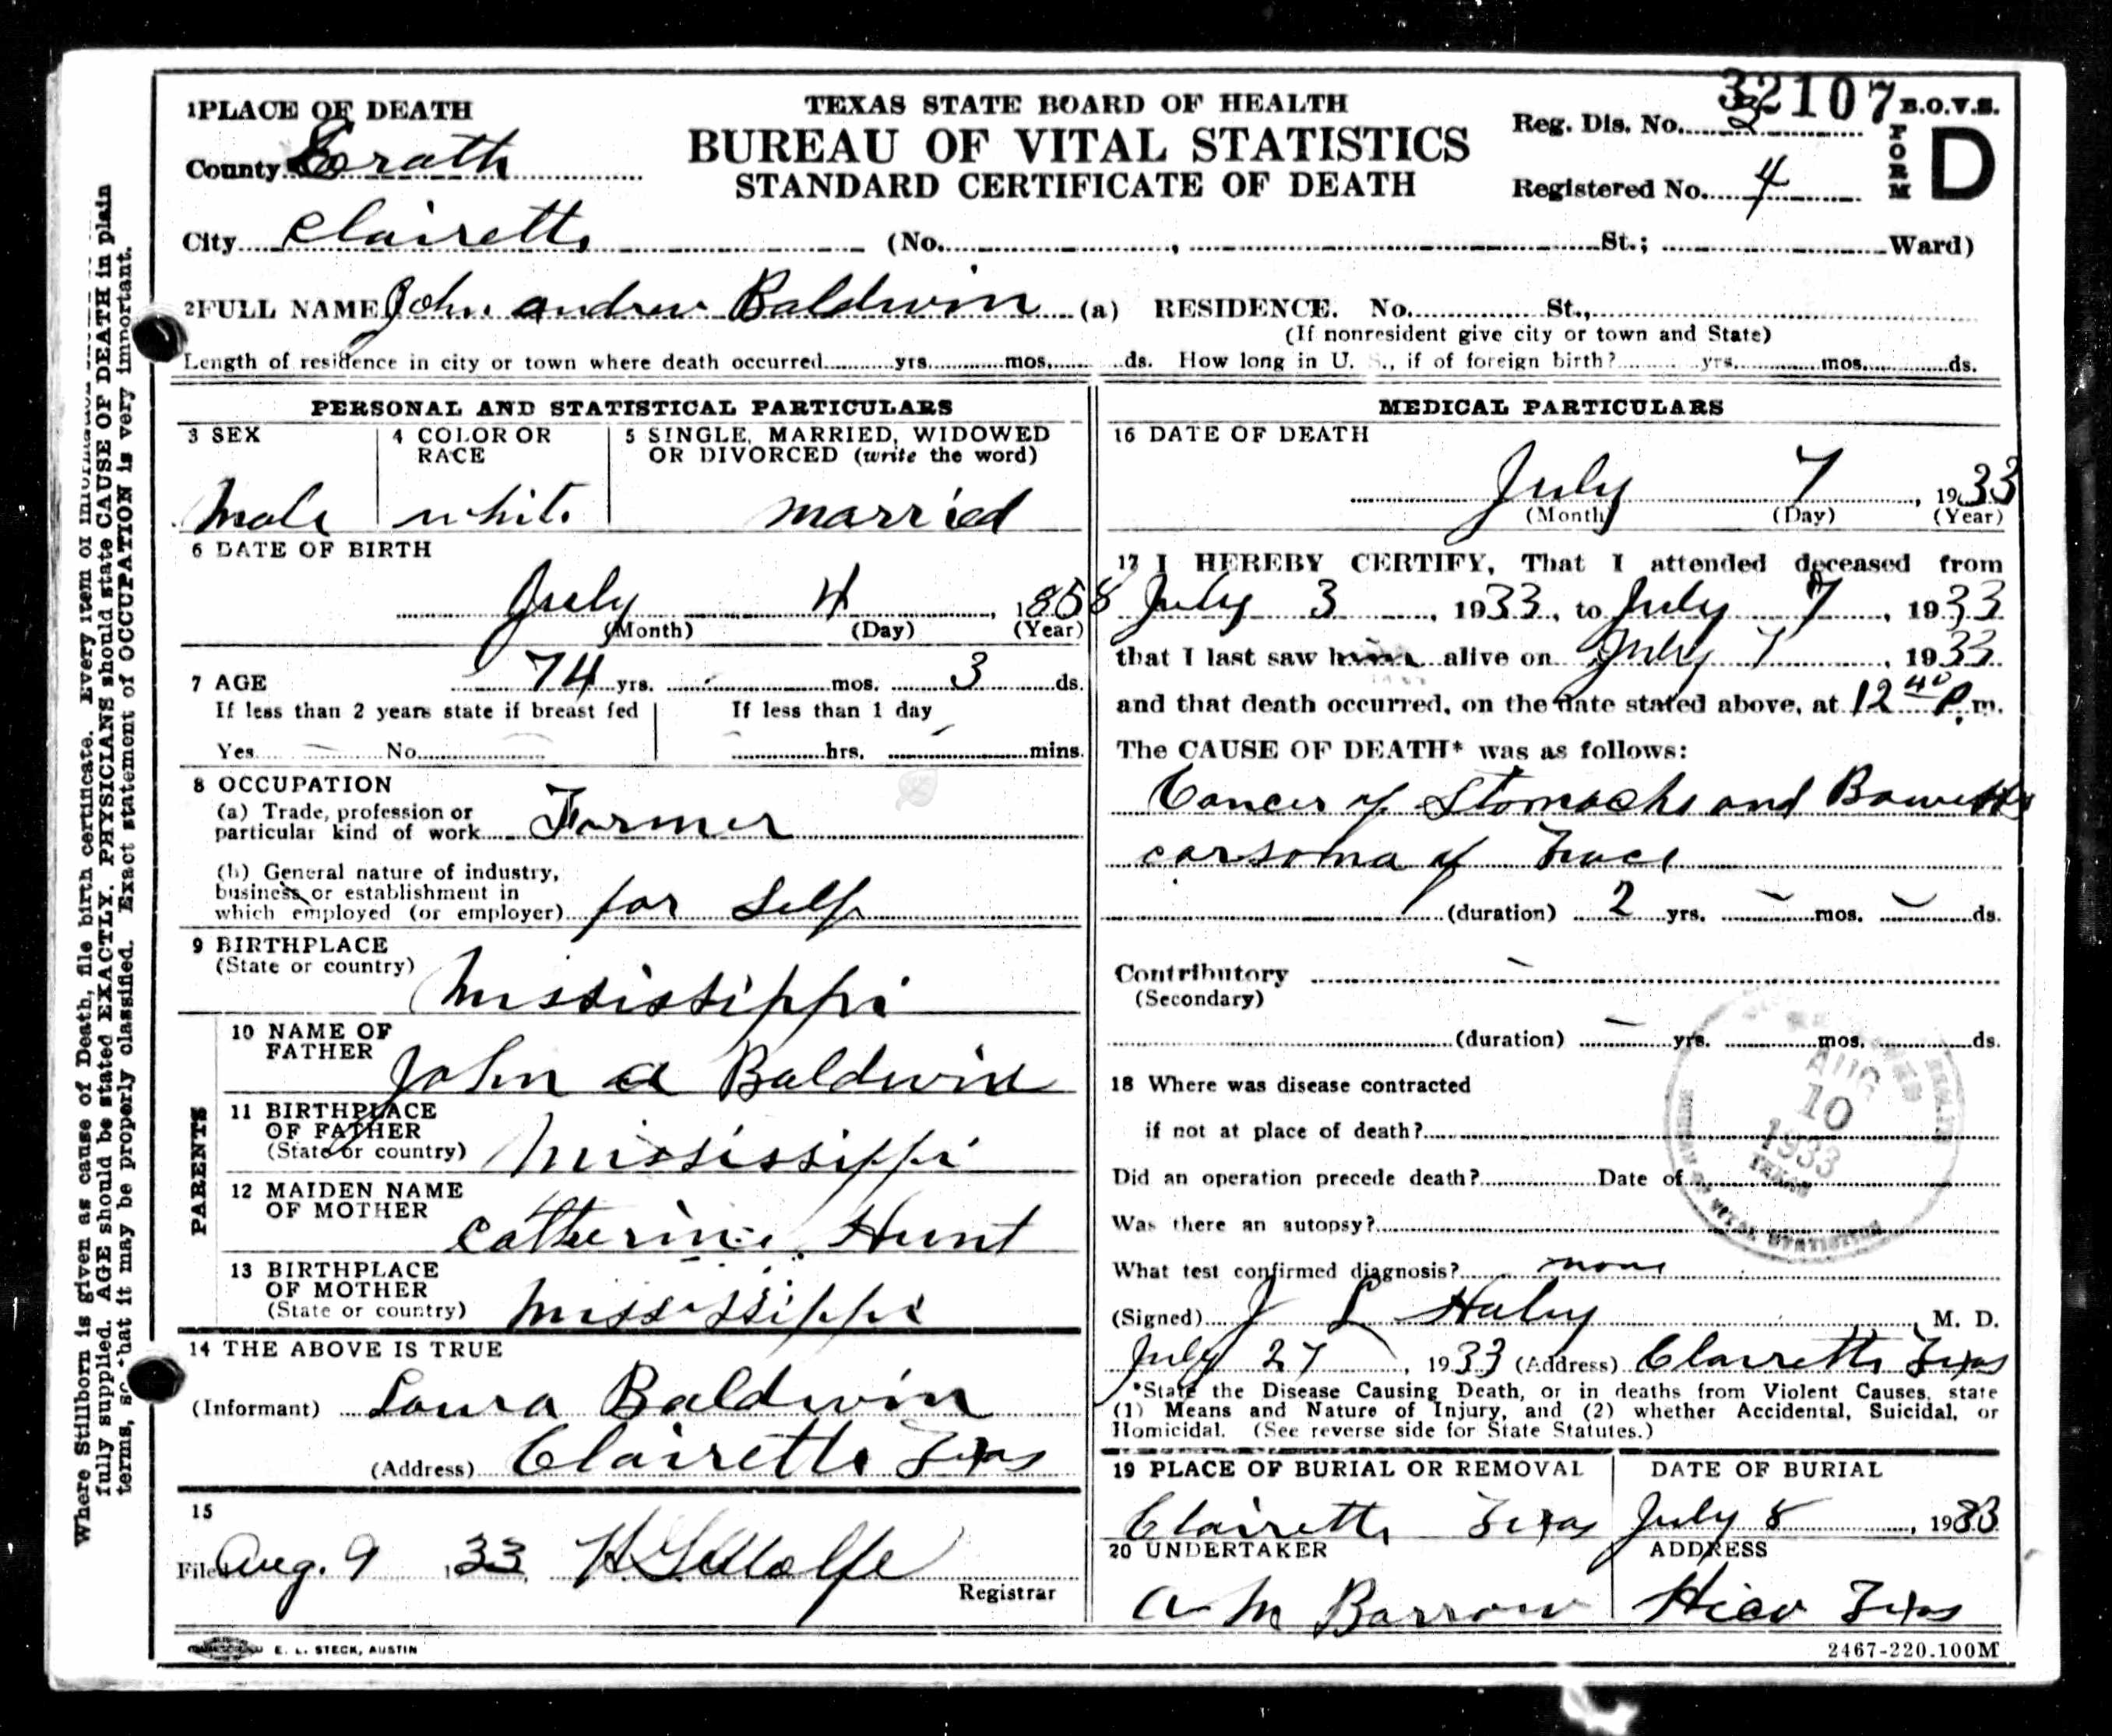 32107
1 PLACE OF DEATH
TEXAS STATE BOARD OF HEALTH
B.O.V.S.
FORM D
County Erath
BUREAU OF VITAL STATISTICS
STANDARD CERTIFICATE OF DEATH
Reg. Dis. No. 3
Registered No. 4
City Clairette (No. , St.; Ward)
2 FULL NAME John Andrew Baldwin (a) RESIDENCE. No. St.,
(If nonresident give city or town and State)
Length of residence in city or town where death occurred yrs. mos. ds. How long in U. S., if of foreign birth? yrs. mos. ds.
PERSONAL AND STATISTICAL PARTICULARS
3 SEX
male
4 COLOR OR RACE
white
5 SINGLE, MARRIED, WIDOWED
OR DIVORCED (write the word)
married
6 DATE OF BIRTH
July 4, 1858
(Month) (Day) (Year)
7 AGE 74 yrs. mos. 3 ds.
If less than 2 years state if breast fed
Yes No
If less than 1 day
hrs. mins.
8 OCCUPATION
(a) Trade, profession or
particular kind of work Farmer
(b) General nature of industry,
business or establishment in
which employed (or employer) for Self
9 BIRTHPLACE
(State or country) Mississippi
PARENTS
10 NAME OF
FATHER John A Baldwin
11 BIRTHPLACE
OF FATHER
(State or country) Mississippi
12 MAIDEN NAME
OF MOTHER Catherine Hunt
13 BIRTHPLACE
OF MOTHER
(State or country) Mississippi
14 THE ABOVE IS TRUE
(Informant) Laura Baldwin
(Address) Clairette Texas
15
Filed Aug. 9 1933
Registrar
MEDICAL PARTICULARS
16 DATE OF DEATH
July 7, 1933
(Month) (Day) (Year)
17 I HEREBY CERTIFY, That I attended deceased from
July 3, 1933, to July 7, 1933
that I last saw him alive on July 7, 1933
and that death occurred, on the date stated above, at 12 40 P. m.
The CAUSE OF DEATH* was as follows:
Cancer of Stomach and
carsoma of
(duration) 2 yrs. - mos. - ds.
Contributory -
(Secondary)
(duration) - yrs. mos. ds.
18 Where was disease contracted
if not at place of death?
Did an operation precede death? Date of
Was there an autopsy?
What test confirmed diagnosis? none
(Signed) J L , M. D.
July 27, 1933 (Address) Clairette Texas
*State the Disease Causing Death, or in deaths from Violent Causes, state
(1) Means and Nature of Injury, and (2) whether Accidental, Suicidal, or
Homicidal. (See reverse side for State Statutes.)
19 PLACE OF BURIAL OR REMOVAL
Clairette Texas
DATE OF BURIAL
July 8, 1933
20 UNDERTAKER
A M Barrow
ADDRESS
Hico Texas
AUG
10
1933
TEXAS
BUREAU OF VITAL STATISTICS
E. L. STECK, AUSTIN
2467-220.100M
Where Stillborn is given as cause of Death, file birth certificate. Every item of
fully supplied. AGE should be stated EXACTLY. PHYSICIANS should state CAUSE OF DEATH in plain
terms, so that it may be properly classified. Exact statement of OCCUPATION is very important.